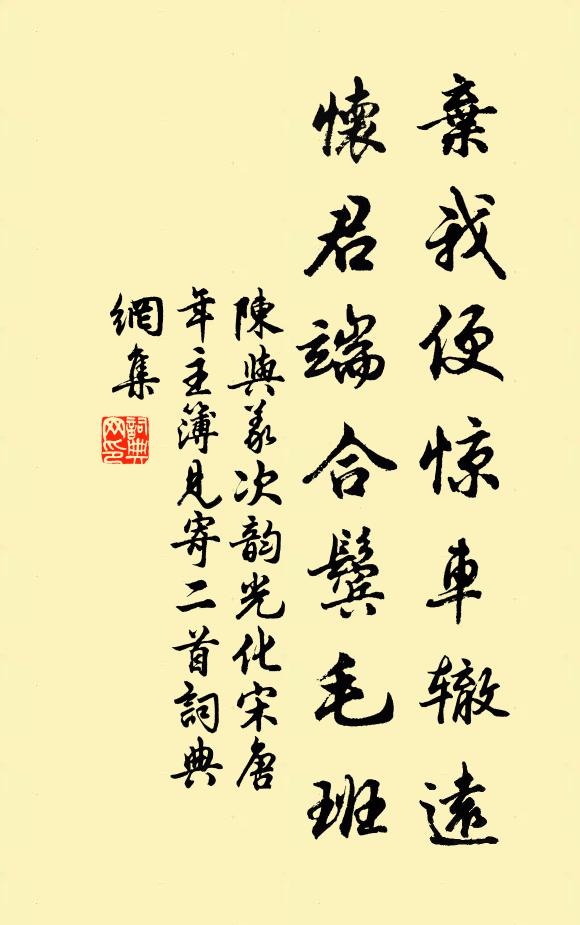 棄我便惊車辙遠
懷君端合鬓毛班
陳與義次韵光化宋唐
年主簿見寄二首詞典
網集
詞典
网印